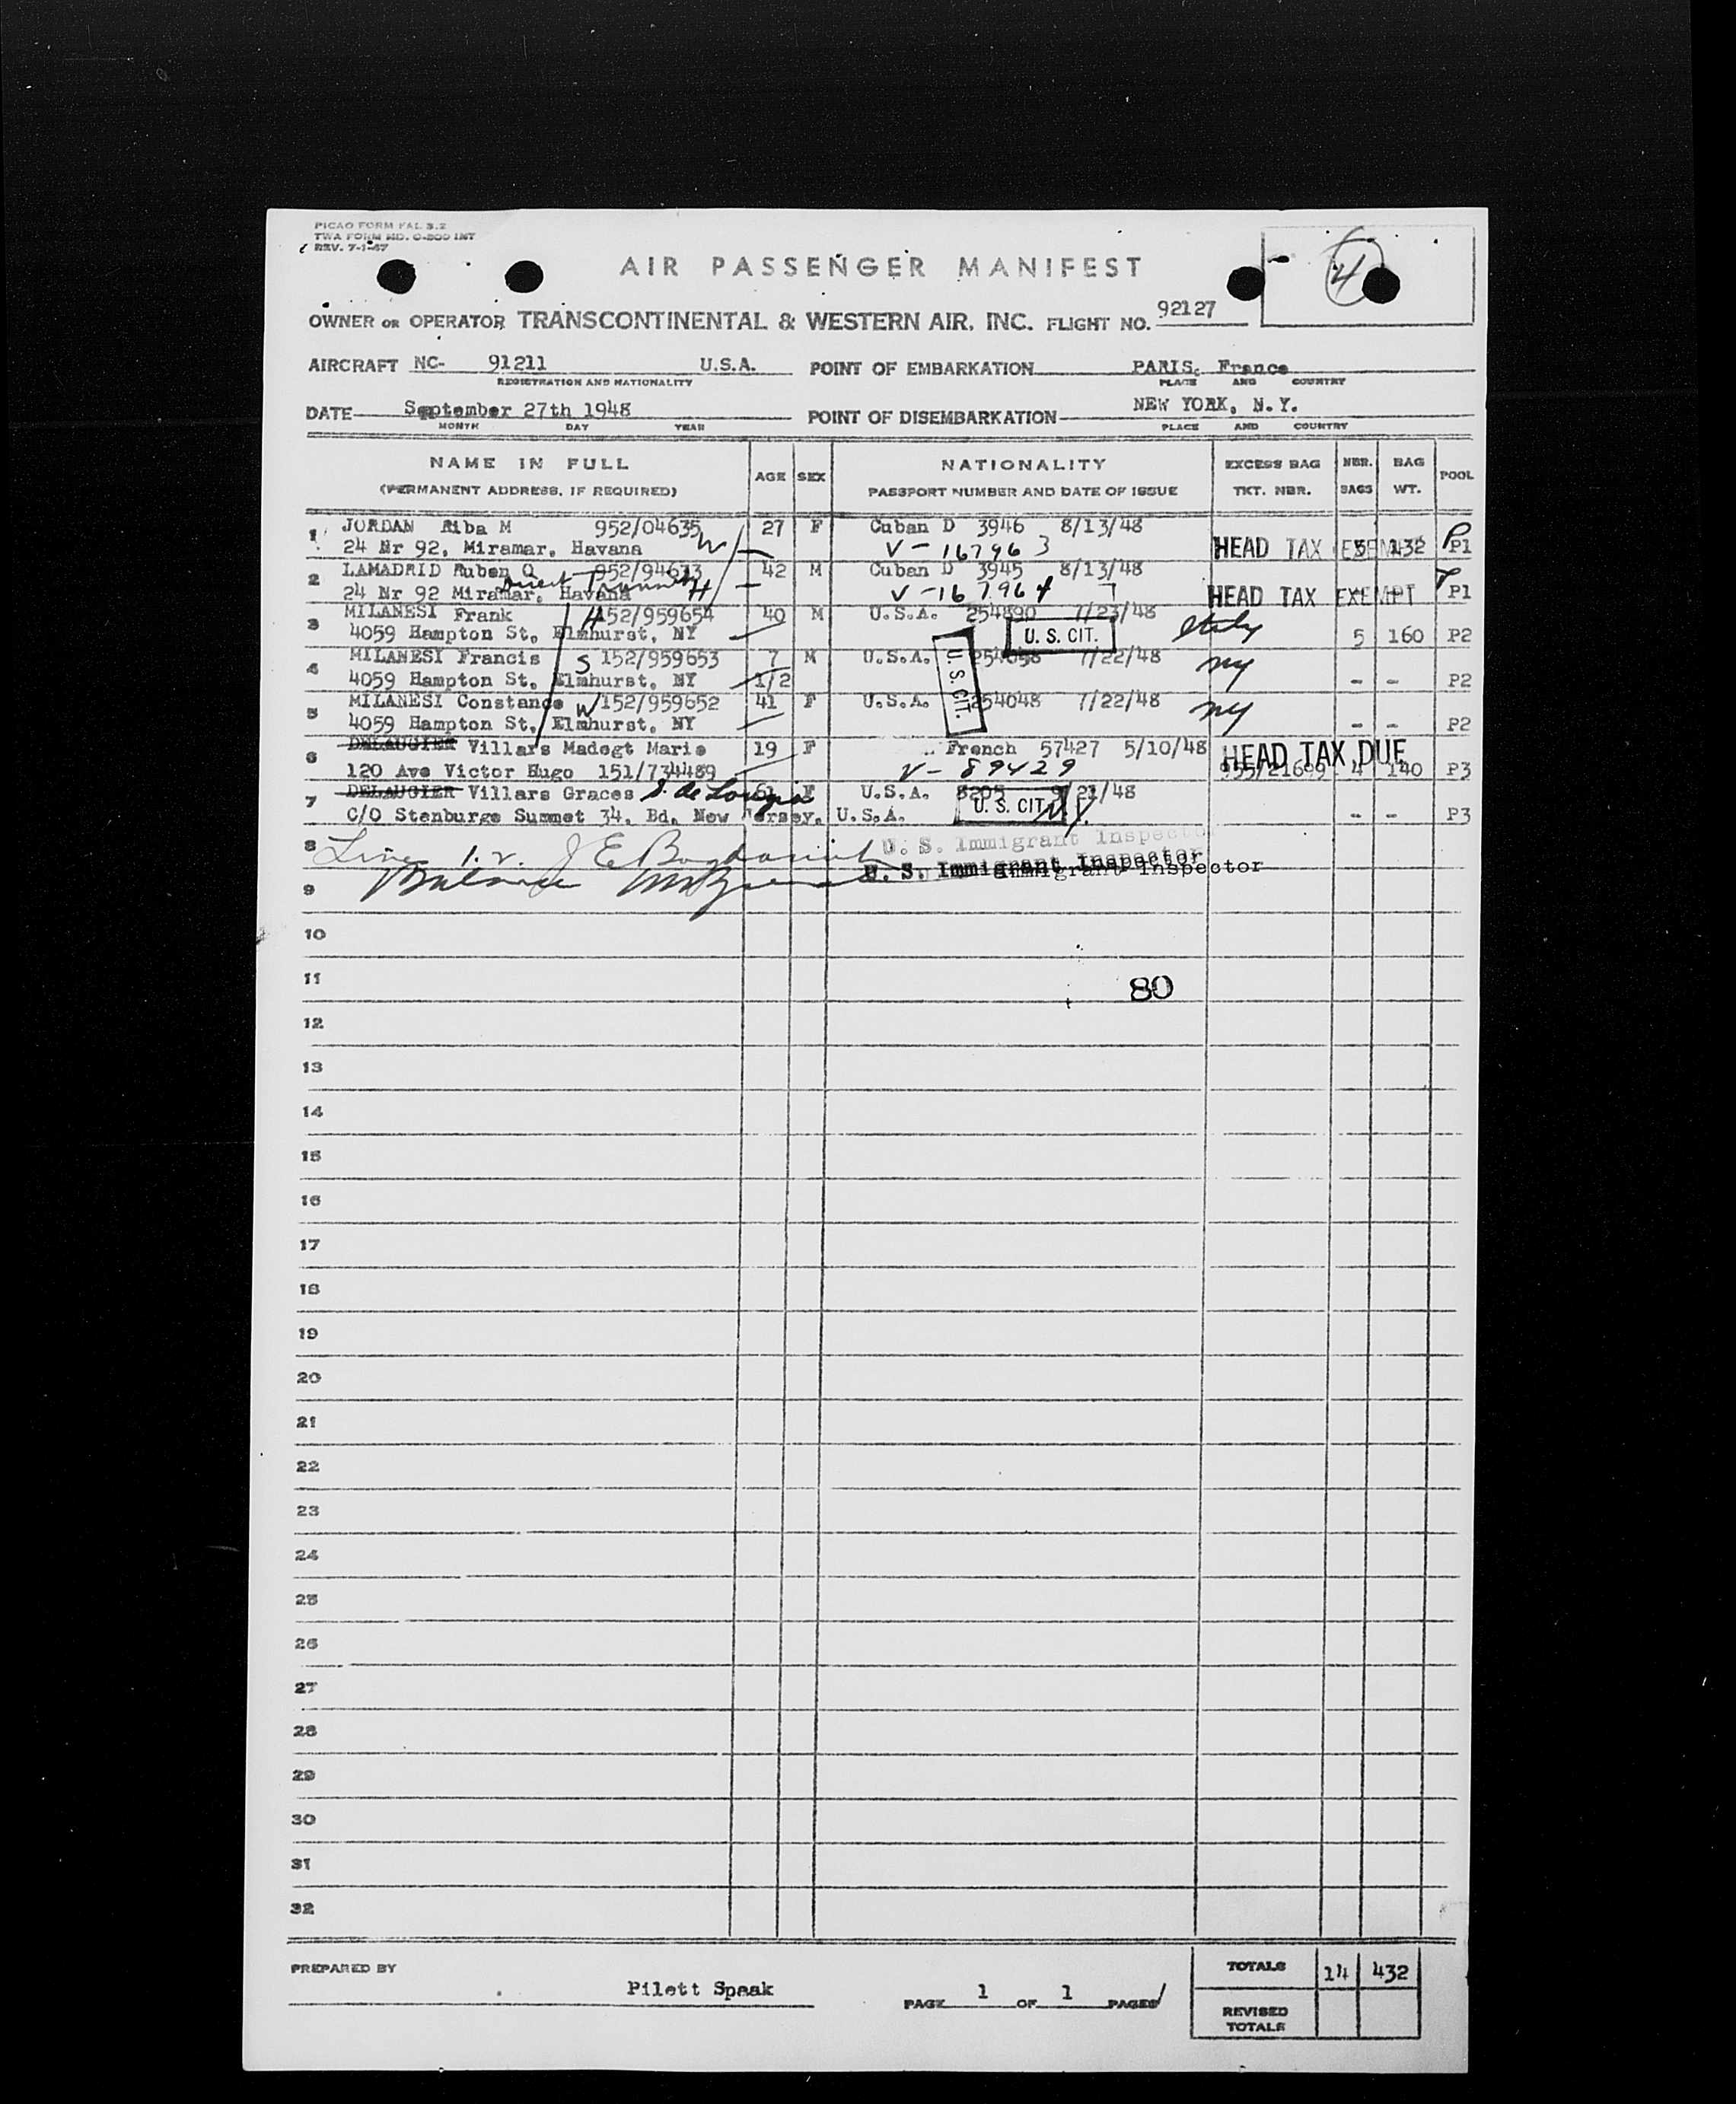 PICAO FORM FAL 3.2
TWA FORM NO. O-200 INT
REV. 7-1-47
4
AIR PASSENGER MANIFEST
OWNER OR OPERATOR TRANSCONTINENTAL & WESTERN AIR, INC. FLIGHT NO. 92127
AIRCRAFT NC- 91211 U.S.A. POINT OF EMBARKATION PARIS, France
REGISTRATION AND NATIONALITY PLACE AND COUNTRY
DATE September 27th 1948 POINT OF DISEMBARKATION NEW YORK, N.Y.
MONTH DAY YEAR PLACE AND COUNTRY
NAME IN FULL AGE SEX NATIONALITY EXCESS BAG NBR. BAG POOL
(PERMANENT ADDRESS, IF REQUIRED) PASSPORT NUMBER AND DATE OF ISSUE TKT. NBR. BAGS WT.
1 JORDAN Riba M 952/04635 W 27 F Cuban D 3946 8/13/48
24 Nr 92, Miramar, Havana V-167963 HEAD TAX EXEMPT 5 132 P1
2 LAMADRID Ruben Q 952/94633 H 42 M Cuban D 3945 8/13/48
24 Nr 92 Miramar, Havana V-167964 HEAD TAX EXEMPT P1
3 MILANESI Frank H 152/959654 40 M U.S.A. 254890 7/23/48 Italy
4059 Hampton St, Elmhurst, NY U. S. CIT. 5 160 P2
4 MILANESI Francis S 152/959653 7 M U.S.A. 7/22/48 NY
4059 Hampton St, Elmhurst, NY 1/2 U. S. CIT. - - P2
5 MILANESI Constance W 152/959652 41 F U.S.A. 254048 7/22/48 NY
4059 Hampton St, Elmhurst, NY - - P2
6 DELAUGIER Villars Madegt Marie 19 F French 57427 5/10/48 HEAD TAX DUE
120 Ave Victor Hugo 151/734489 V-89429 955/21699 4 140 P3
7 DELAUGIER Villars Graces 61 F U.S.A. 8205 9/21/48
C/O Stenburge Summet 34, Bd, New Jersey, U.S.A. U. S. CIT. N.Y. - - P3
8 Line 1.2. U. S. Immigrant Inspector
U. S. Immigrant Inspector
Immigrant Inspector
9 Balance
10
11 80
12
13
14
15
16
17
18
19
20
21
22
23
24
25
26
27
28
29
30
31
32
PREPARED BY Pilett Speak PAGE 1 OF 1 PAGES TOTALS 14 432
REVISED TOTALS